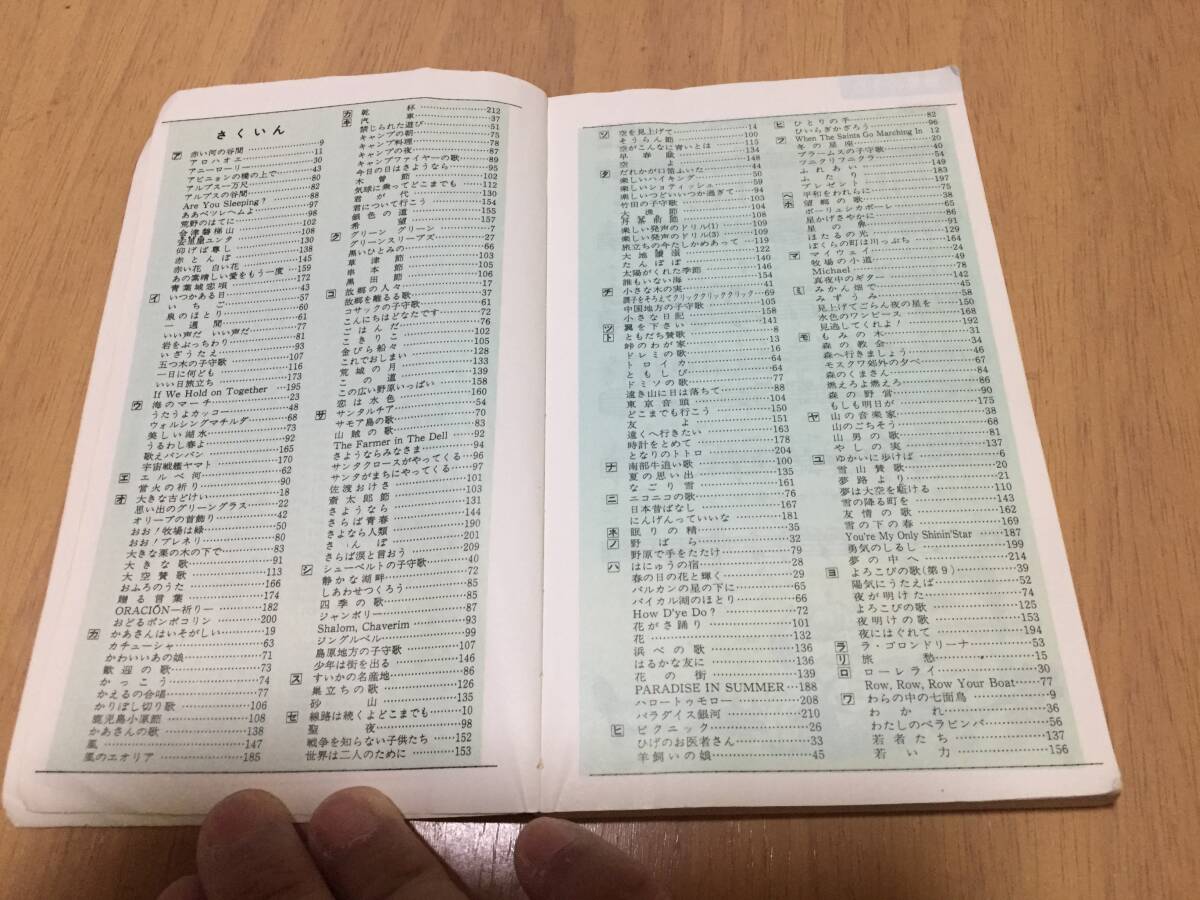 さくいん
ア 赤い河の谷間……9
アロハオエ……11
アニーローリー……30
アビニョンの橋の上で……43
アルプス一万尺……80
アルプスの谷間……82
Are You Sleeping?……88
ああベツレヘムよ……97
荒野のはてに……98
会津磐梯山……102
安里屋ユンタ……108
仰げば尊し……130
赤とんぼ……138
赤い花 白い花……145
あの素晴しい愛をもう一度……159
青葉城恋唄……172
イ いつかある日……43
いちご……57
泉のほとり……60
一週間……61
いい声だ いい声だ……77
岩をぶっちわり……81
いざうたえ……93
五つ木の子守歌……107
一日に何ども……116
いい日旅立ち……173
If We Hold on Together……195
ウ 海のマーチ……23
うたうよカッコー……48
ウォルシングマチルダ……68
美しい湖水……73
うるわし春よ……92
歌えバンバン……165
宇宙戦艦ヤマト……170
エ エルベ河……62
営火の祈り……90
オ 大きな古どけい……18
思い出のグリーングラス……22
オリーブの首飾り……42
おお!牧場は緑……50
おお!ブレネリ……80
大きな栗の木の下で……83
大きな歌……91
大空賛歌……113
おふろのうた……166
贈る言葉……174
ORACIÓN―祈り―……182
おどるポンポコリン……200
カ かあさんはいそがしい……19
カチューシャ……63
かわいいあの娘……71
歓迎の歌……73
かっこう……74
かえるの合唱……77
かりぼし切り歌……106
鹿児島小原節……108
かあさんの歌……138
風……147
風のエオリア……185
カ 乾杯……212
キ 汽車……37
禁じられた遊び……51
キャンプの朝……75
キャンプ料理……78
キャンプの夜……87
キャンプファイヤーの歌……89
今日の日はさようなら……95
木曽節……102
気球に乗ってどこまでも……112
君が代……130
君について行こう……154
銀色の道……155
希望……157
ク グリーン グリーン……7
グリーンスリーブス……27
黒いひとみの……66
草津節……103
串本節……105
黒田節……106
コ 故郷の人々……17
故郷を離るる歌……37
コサックの子守歌……61
こんにちはどなたです……72
ごはんだ……76
こきりこ……102
金びら船々……105
これでおしまい……128
荒城の月……133
この道……139
この広い野原いっぱい……158
恋は水色……160
サ サンタルチア……54
サモア島の歌……70
山賊の歌……83
The Farmer in The Dell……92
さようならみなさま……94
サンタクロースがやってくる……96
サンタがまちにやってくる……97
佐渡おけさ……101
斎太郎節……103
さようなら……131
さらば青春……144
さよなら人類……190
さんぽ……201
さらば涙と言おう……209
シ シューベルトの子守歌……40
静かな湖畔……72
しあわせつくろう……85
四季の歌……85
ジャンボリー……87
Shalom, Chaverim……93
ジングルベル……99
島原地方の子守歌……107
少年は街を出る……146
ス すいかの名産地……86
巣立ちの歌……126
砂山……135
セ 線路は続くよどこまでも……10
聖夜……98
戦争を知らない子供たち……152
世界は二人のために……153
ソ 空を見上げて……14
そうらん節……100
空がこんなに青いとは……115
早春賦……134
空よ……148
タ だれかが口笛ふいた……44
楽しいハイキング……50
楽しいショティッシュ……59
楽しいつどいいつか過ぎて……94
竹田の子守歌……107
大漁節……103
楽しい発声のドリル(1)……109
楽しい発声のドリル(3)……109
旅立ちの今たしかめあって……119
大地讃頌……122
たんぽぽ……140
太陽がくれた季節……146
誰もいない海……154
チ 小さな木の実……41
調子をそろえてクリッククリッククリック……69
中国地方の子守歌……105
小さな日記……158
ツ 翼を下さい……141
ト ともだち賛歌……8
峠のわが家……13
ドレミの歌……16
トロイカ……64
ともしび……64
ドミソの歌……77
遠き山に日は落ちて……88
東京音頭……104
どこまでも行こう……150
友よ……151
遠くへ行きたい……163
時計をとめて……178
となりのトトロ……204
ナ 南部牛追い歌……100
夏の思い出……135
なごり雪……161
ニ ニコニコの歌……76
日本昔ばなし……167
にんげんっていいな……181
ネ 眠りの精……35
ノ 野ばら……32
野原で手をたたけ……79
ハ はにゅうの宿……28
春の日の花と輝く……29
バルカンの星の下に……65
バイカル湖のほとり……66
How D'ye Do?……72
花がさ踊り……101
花……132
浜べの歌……136
はるかな友に……136
花の街……139
PARADISE IN SUMMER……188
ハロートゥモロー……208
パラダイス銀河……210
ヒ ピクニック……26
ひげのお医者さん……33
羊飼いの娘……45
ヒ ひとりの手……82
ひいらぎかざろう……96
When The Saints Go Marching In 12
フ 冬の星座……20
ブラームスの子守歌……40
フニクリフニクラ……54
ふれあい……149
ふたり……183
プレゼント……197
ヘ 平和をわれらに……75
ホ 望郷の歌……38
ボーリュシカポーレ……65
星かげさやかに……86
星の界……91
ほたるの光……129
ぼくらの町は川っぷち……164
マ マイウェイ……24
牧場の小道……49
Michael……78
真夜中のギター……142
ミ みかん畑で……45
みずうみ……58
見上げてごらん夜の星を……150
水色のワンピース……168
見逃してくれよ!……192
モ もみの木……31
森の教会……34
森へ行きましょう……46
モスクワ郊外の夕べ……67
森のくまさん……84
燃えろよ燃えろ……86
森の野営……90
もしも明日が……143
ヤ 山の音楽家……38
山のごちそう……68
山男の歌……81
やしの実……137
ユ ゆかいに歩けば……6
雪山賛歌……20
夢路より……21
夢は大空を駈ける……110
雪の降る町を……143
友情の歌……162
雪の下の春……169
You're My Only Shinin' Star……187
勇気のしるし……199
夢の中へ……214
ヨ よろこびの歌(第9)……39
陽気にうたえば……52
夜が明けた……74
よろこびの歌……125
夜明けの歌……153
夜にはぐれて……194
ラ ラ・ゴロンドリーナ……53
リ 旅愁……15
ロ ローレライ……30
Row, Row, Row Your Boat……77
ワ わらの中の七面鳥……9
わかれ……36
わたしのペラピンパ……56
若者たち……137
若い力……156